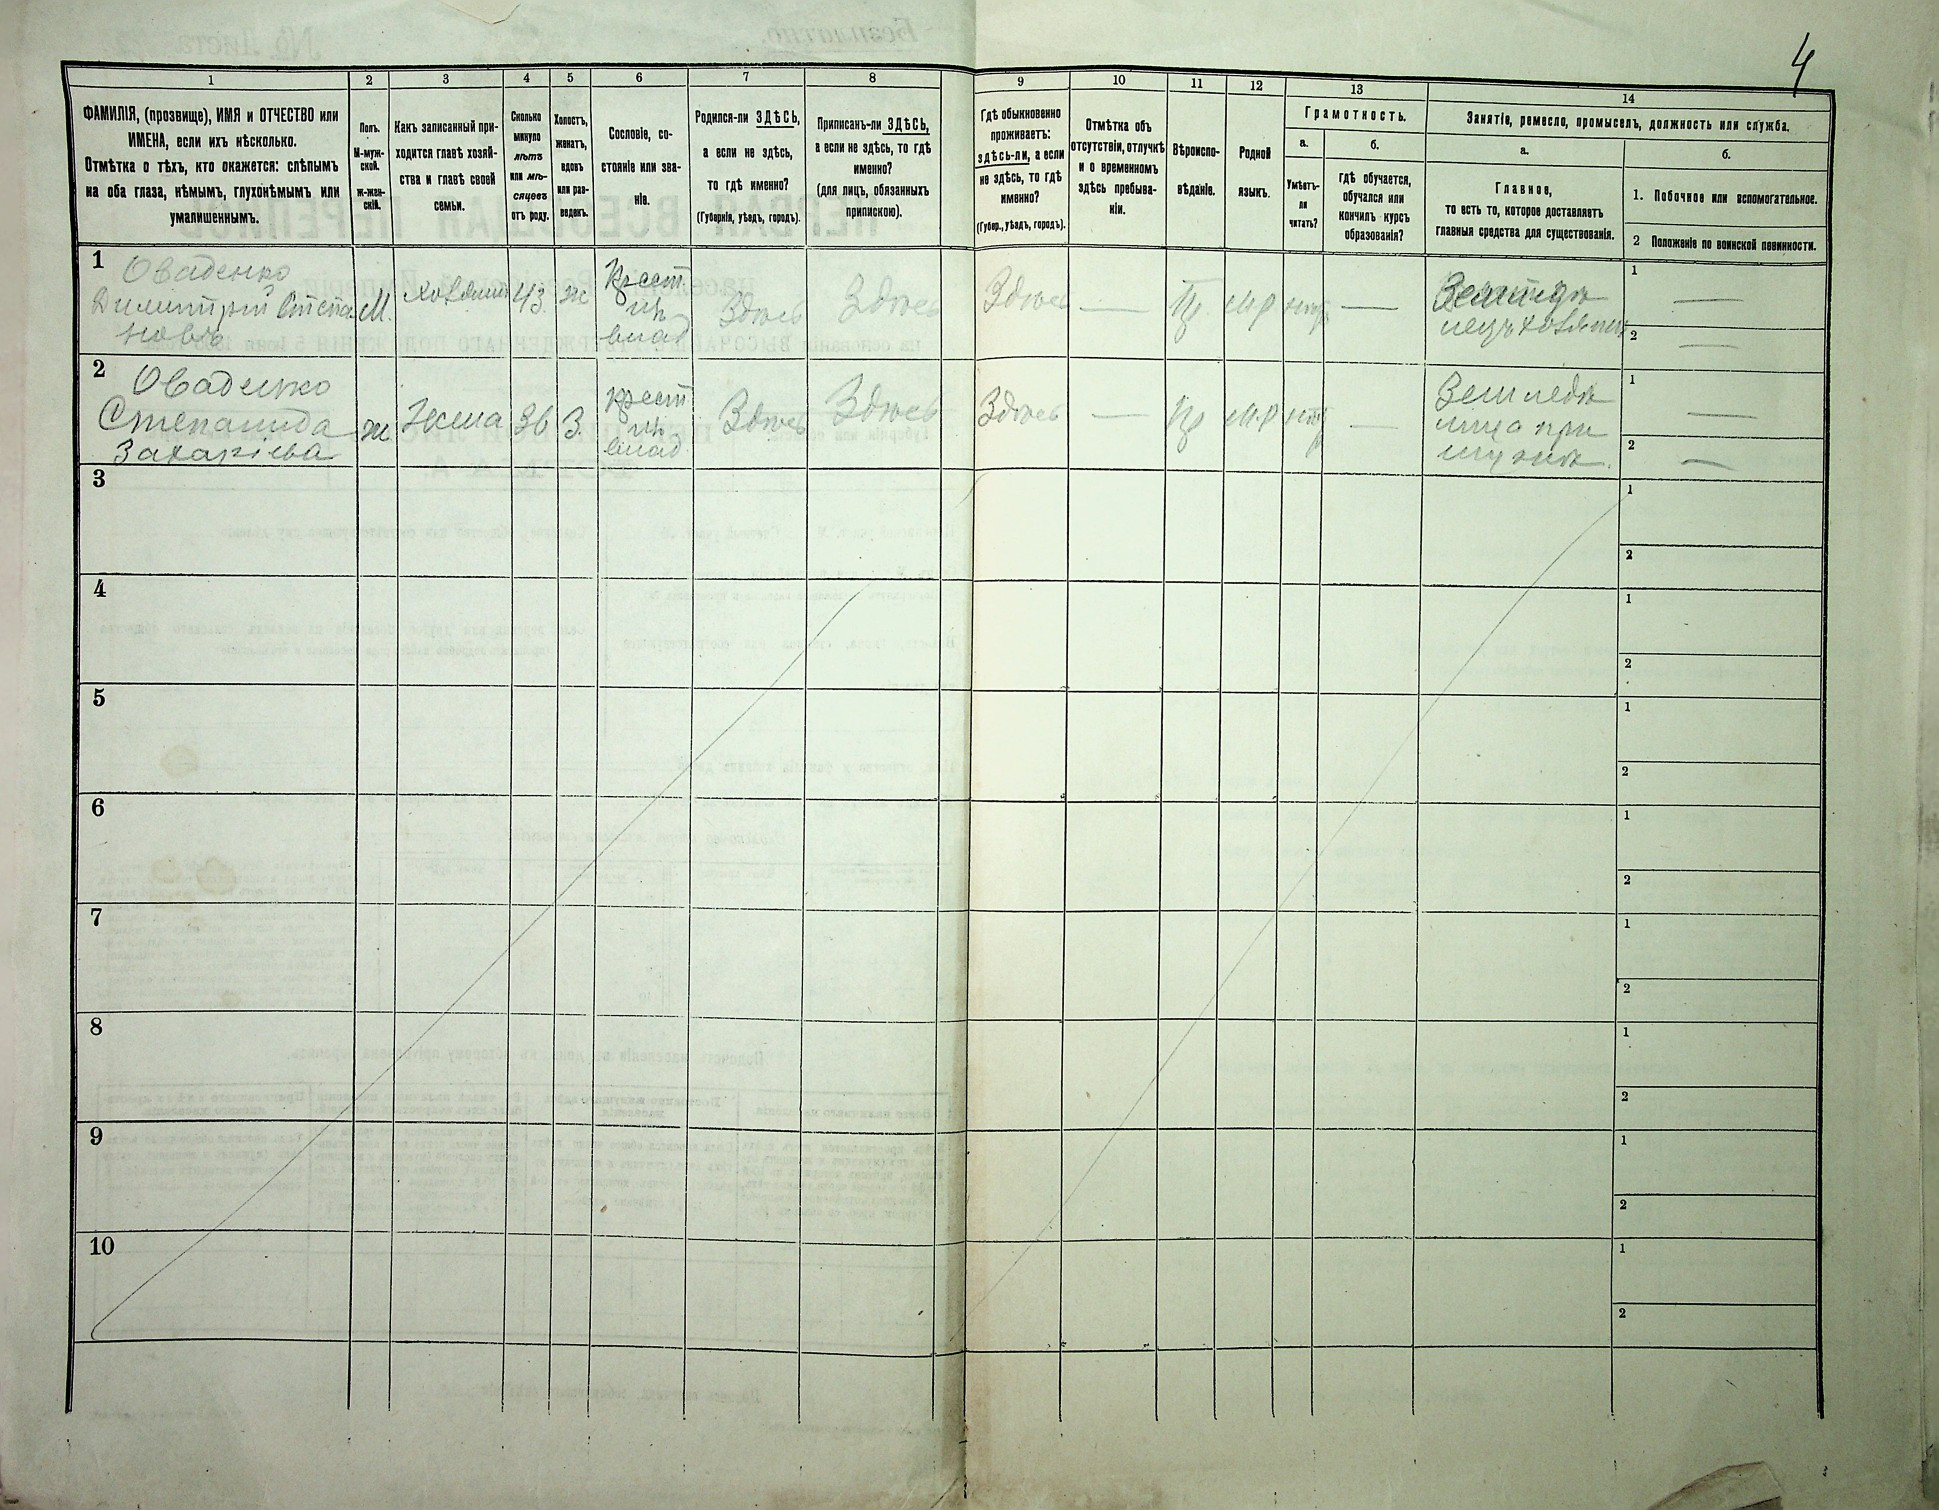 4
1
2
3
4
5
6
7
8
9
10
11
12
13
14
ФАМИЛІЯ, (прозвище), ИМЯ и ОТЧЕСТВО или
ИМЕНА, если ихъ нѣсколько.
Отмѣтка о тѣхъ, кто окажется: слѣпымъ
на оба глаза, нѣмымъ, глухонѣмымъ или
умалишеннымъ.
Полъ.
М-муж-
ской.
ж-жен-
скій.
Какъ записанный при-
ходится главѣ хозяй-
ства и главѣ своей
семьи.
Сколько
минуло
лѣтъ
или мѣ-
сяцевъ
отъ роду.
Холостъ,
женатъ,
вдовъ
или раз-
веденъ.
Сословіе, со-
стояніе или зва-
ніе.
Родился-ли ЗДѢСЬ,
а если не здѣсь,
то гдѣ именно?
(Губернія, уѣздъ, городъ).
Приписанъ-ли ЗДѢСЬ,
а если не здѣсь, то гдѣ
именно?
(для лицъ, обязанныхъ
припискою).
Гдѣ обыкновенно
проживаетъ:
здѣсь-ли, а если
не здѣсь, то гдѣ
именно?
(Губер., уѣздъ, городъ).
Отмѣтка объ
отсутствіи, отлучкѣ
и о временномъ
здѣсь пребыва-
ніи.
Вѣроиспо-
вѣданіе.
Родной
языкъ.
Грамотность.
а.
Умѣетъ-
ли
читать?
б.
гдѣ обучается,
обучался или
кончилъ курсъ
образованія?
Занятіе, ремесло, промыселъ, должность или служба.
а.
Главное,
то есть то, которое доставляетъ
главныя средства для существованія.
б.
1. Побочное или вспомогательное.
2 Положеніе по воинской повинности.
1
Оваденко
Димитрій Степа
новъ
М.
хозяинъ
43
ж
крест
изъ
влад
Здѣсь
Здѣсь
Здѣсь
—
Пр.
М.Р
нѣтъ
—
хозяинъ
1 —
2 —
2
Оваденко
Степанида
Захаріева
ж
Жена
36
З.
крест
изъ
влад
Здѣсь
Здѣсь
Здѣсь
—
Пр
М.Р
нѣтъ
—
Земледѣ
лица при
мужѣ.
1 —
2 —
3
1
2
4
1
2
5
1
2
6
1
2
7
1
2
8
1
2
9
1
2
10
1
2